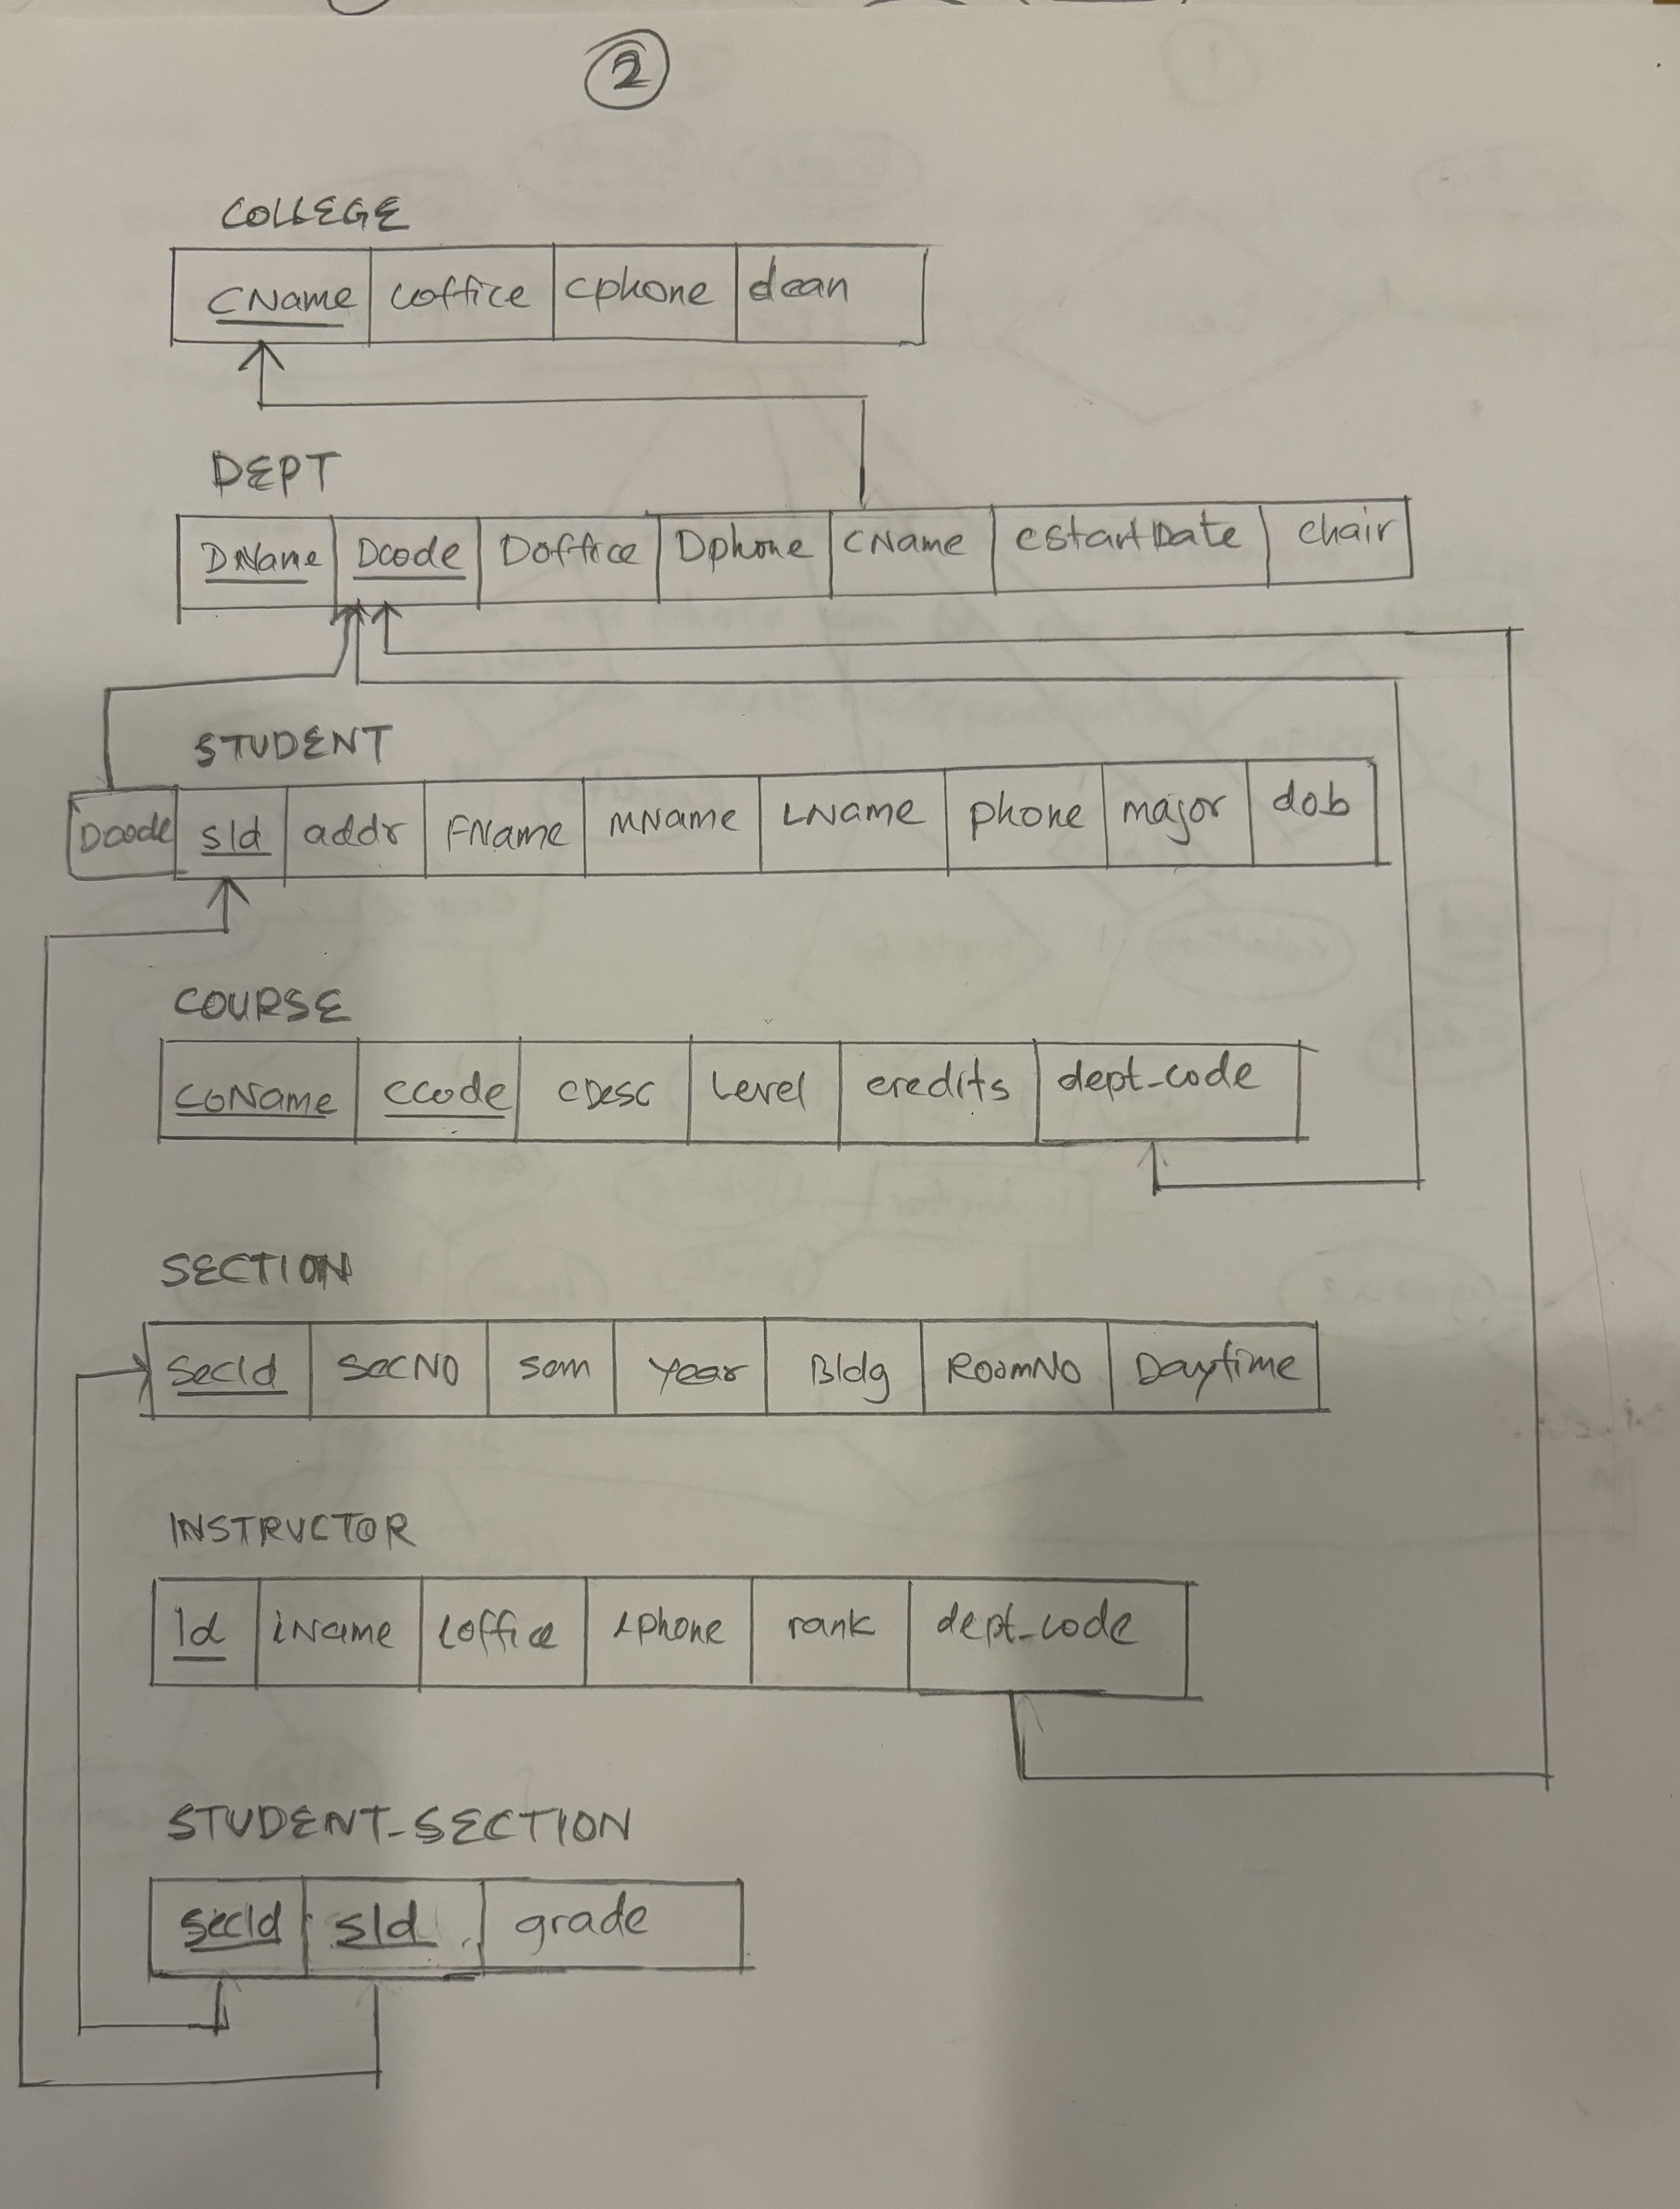 2
COLLEGE
CName Coffice Cphone dean
DEPT
DName Dcode Doffice Dphone CName CStartDate chair
STUDENT
Dcode sId addr FName MName LName phone major dob
COURSE
CoName CCode CDesc Level credits dept_code
SECTION
SecId SecNo sem Year Bldg RoomNo Daytime
INSTRUCTOR
Id iName ioffice iphone rank dept_code
STUDENT_SECTION
secId sId grade